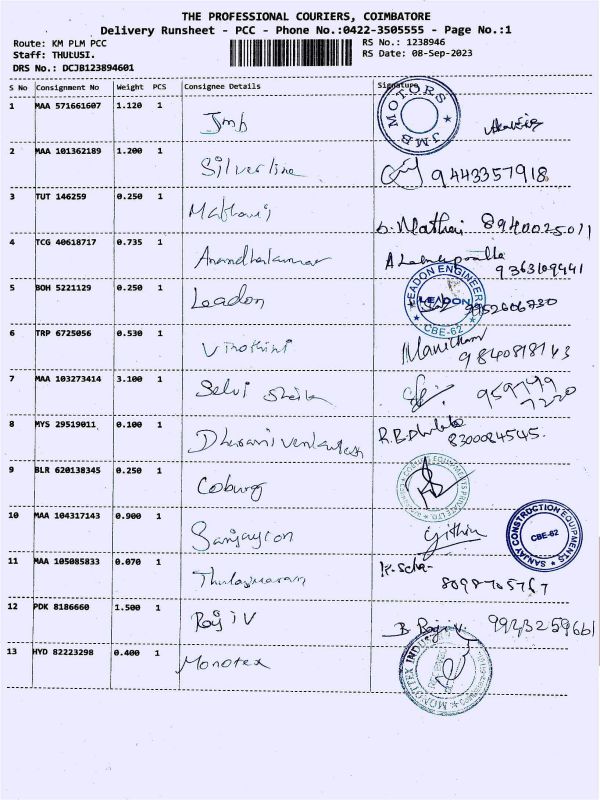 THE PROFESSIONAL COURIERS, COIMBATORE
Delivery Runsheet - PCC - Phone No.:0422-3505555 - Page No.:1
Route: KM PLM PCC RS No.: 1238946
Staff: THULUSI. RS Date: 08-Sep-2023
DRS No.: DCJB123894601
S No Consignment No Weight PCS Consignee Details Signature
1 MAA 571661607 1.120 1 Jmb JMB MOTORS
2 MAA 101362189 1.200 1 Silverline 9443357918
3 TUT 146259 0.250 1 Mathavi 8940025011
4 TCG 40618717 0.735 1 Anandhakumar
5 BOH 5221129 0.250 1 Leadon LEADON ENGINEER LEADON CBE-62 9952606730
6 TRP 6725056 0.530 1 Vinothini Manickam
7 MAA 103273414 3.100 1 Selvi
8 MYS 29519011 0.100 1 8300084545.
9 BLR 620138345 0.250 1 Coburg
10 MAA 104317143 0.900 1 SANJAY CONSTRUCTION EQUIPMENTS CBE-62
11 MAA 105085833 0.070 1
12 PDK 8186660 1.500 1 Rajiv B. Rajiv. 9943259661
13 HYD 82223298 0.400 1 Monotex